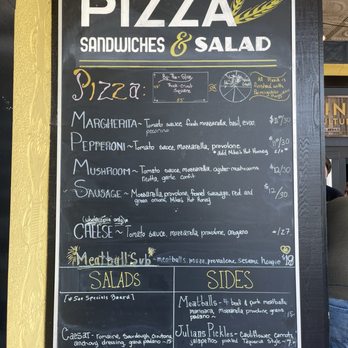 PIZZA
SANDWICHES & SALAD
Pizza:
By-The-Slice
Thick Crust
Square
All Pizza is
finished with
MARGHERITA ~ Tomato sauce, fresh mozzarella, basil, evoo,
pecorino
PEPPERONI ~ Tomato sauce, mozzarella, provolone
* Add Mike's Hot Honey
MUSHROOM ~ Tomato sauce, mozzarella, oyster mushrooms
ricotta, garlic confit
$12/30
SAUSAGE ~ Mozzarella, provolone, fennel sausage, red and
green onions, Mike's Hot Honey
$12/30
(whole pie only)
CHEESE ~ Tomato sauce, mozzarella, provolone, oregano
-/27
"Meatball Sub" - meatballs, mozz, provolone, sesame hoagie
SALADS
[* See Specials Board]
Caesar - Romaine, sourdough croutons,
anchovy dressing, grana padano - 15
SIDES
Meatballs - 4 beef & pork meatballs
marinara, Mozzarella, provolone, grana
padano -
Julians Pickles - Cauliflower, carrots,
jalapeños, pickled Taqueria style - 7